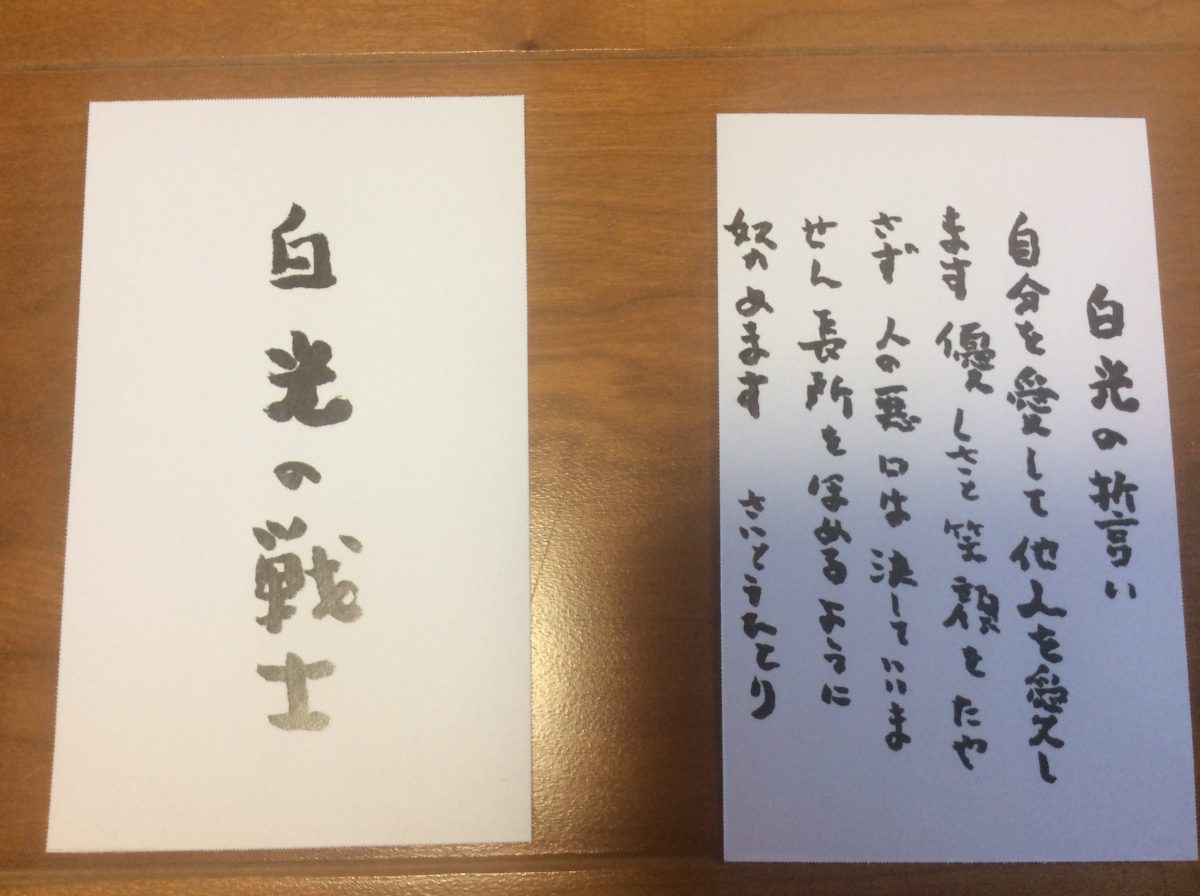 白光の戦士
白光の誓い
自分を愛して他人を愛し
ます優しさと笑顔をたや
さず人の悪口は決していいま
せん長所をほめるように
努めます さいとうひとり